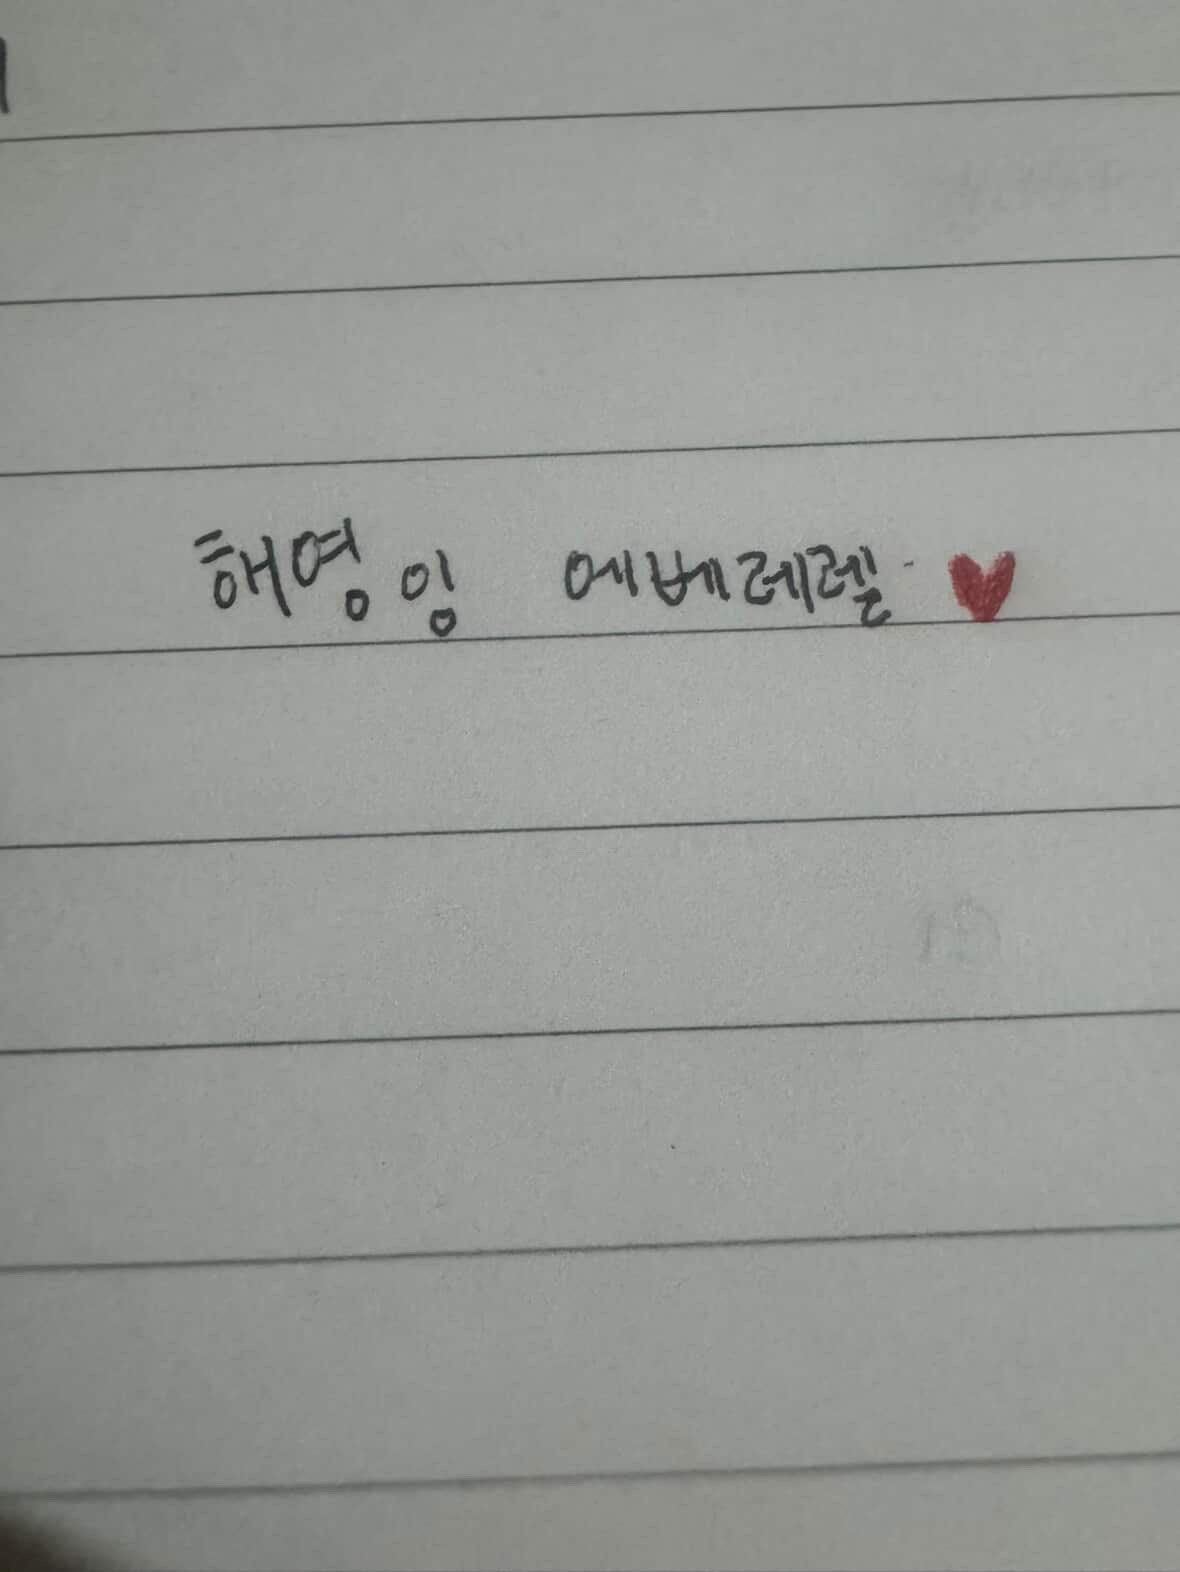 해영잉 에베레렐 ♥